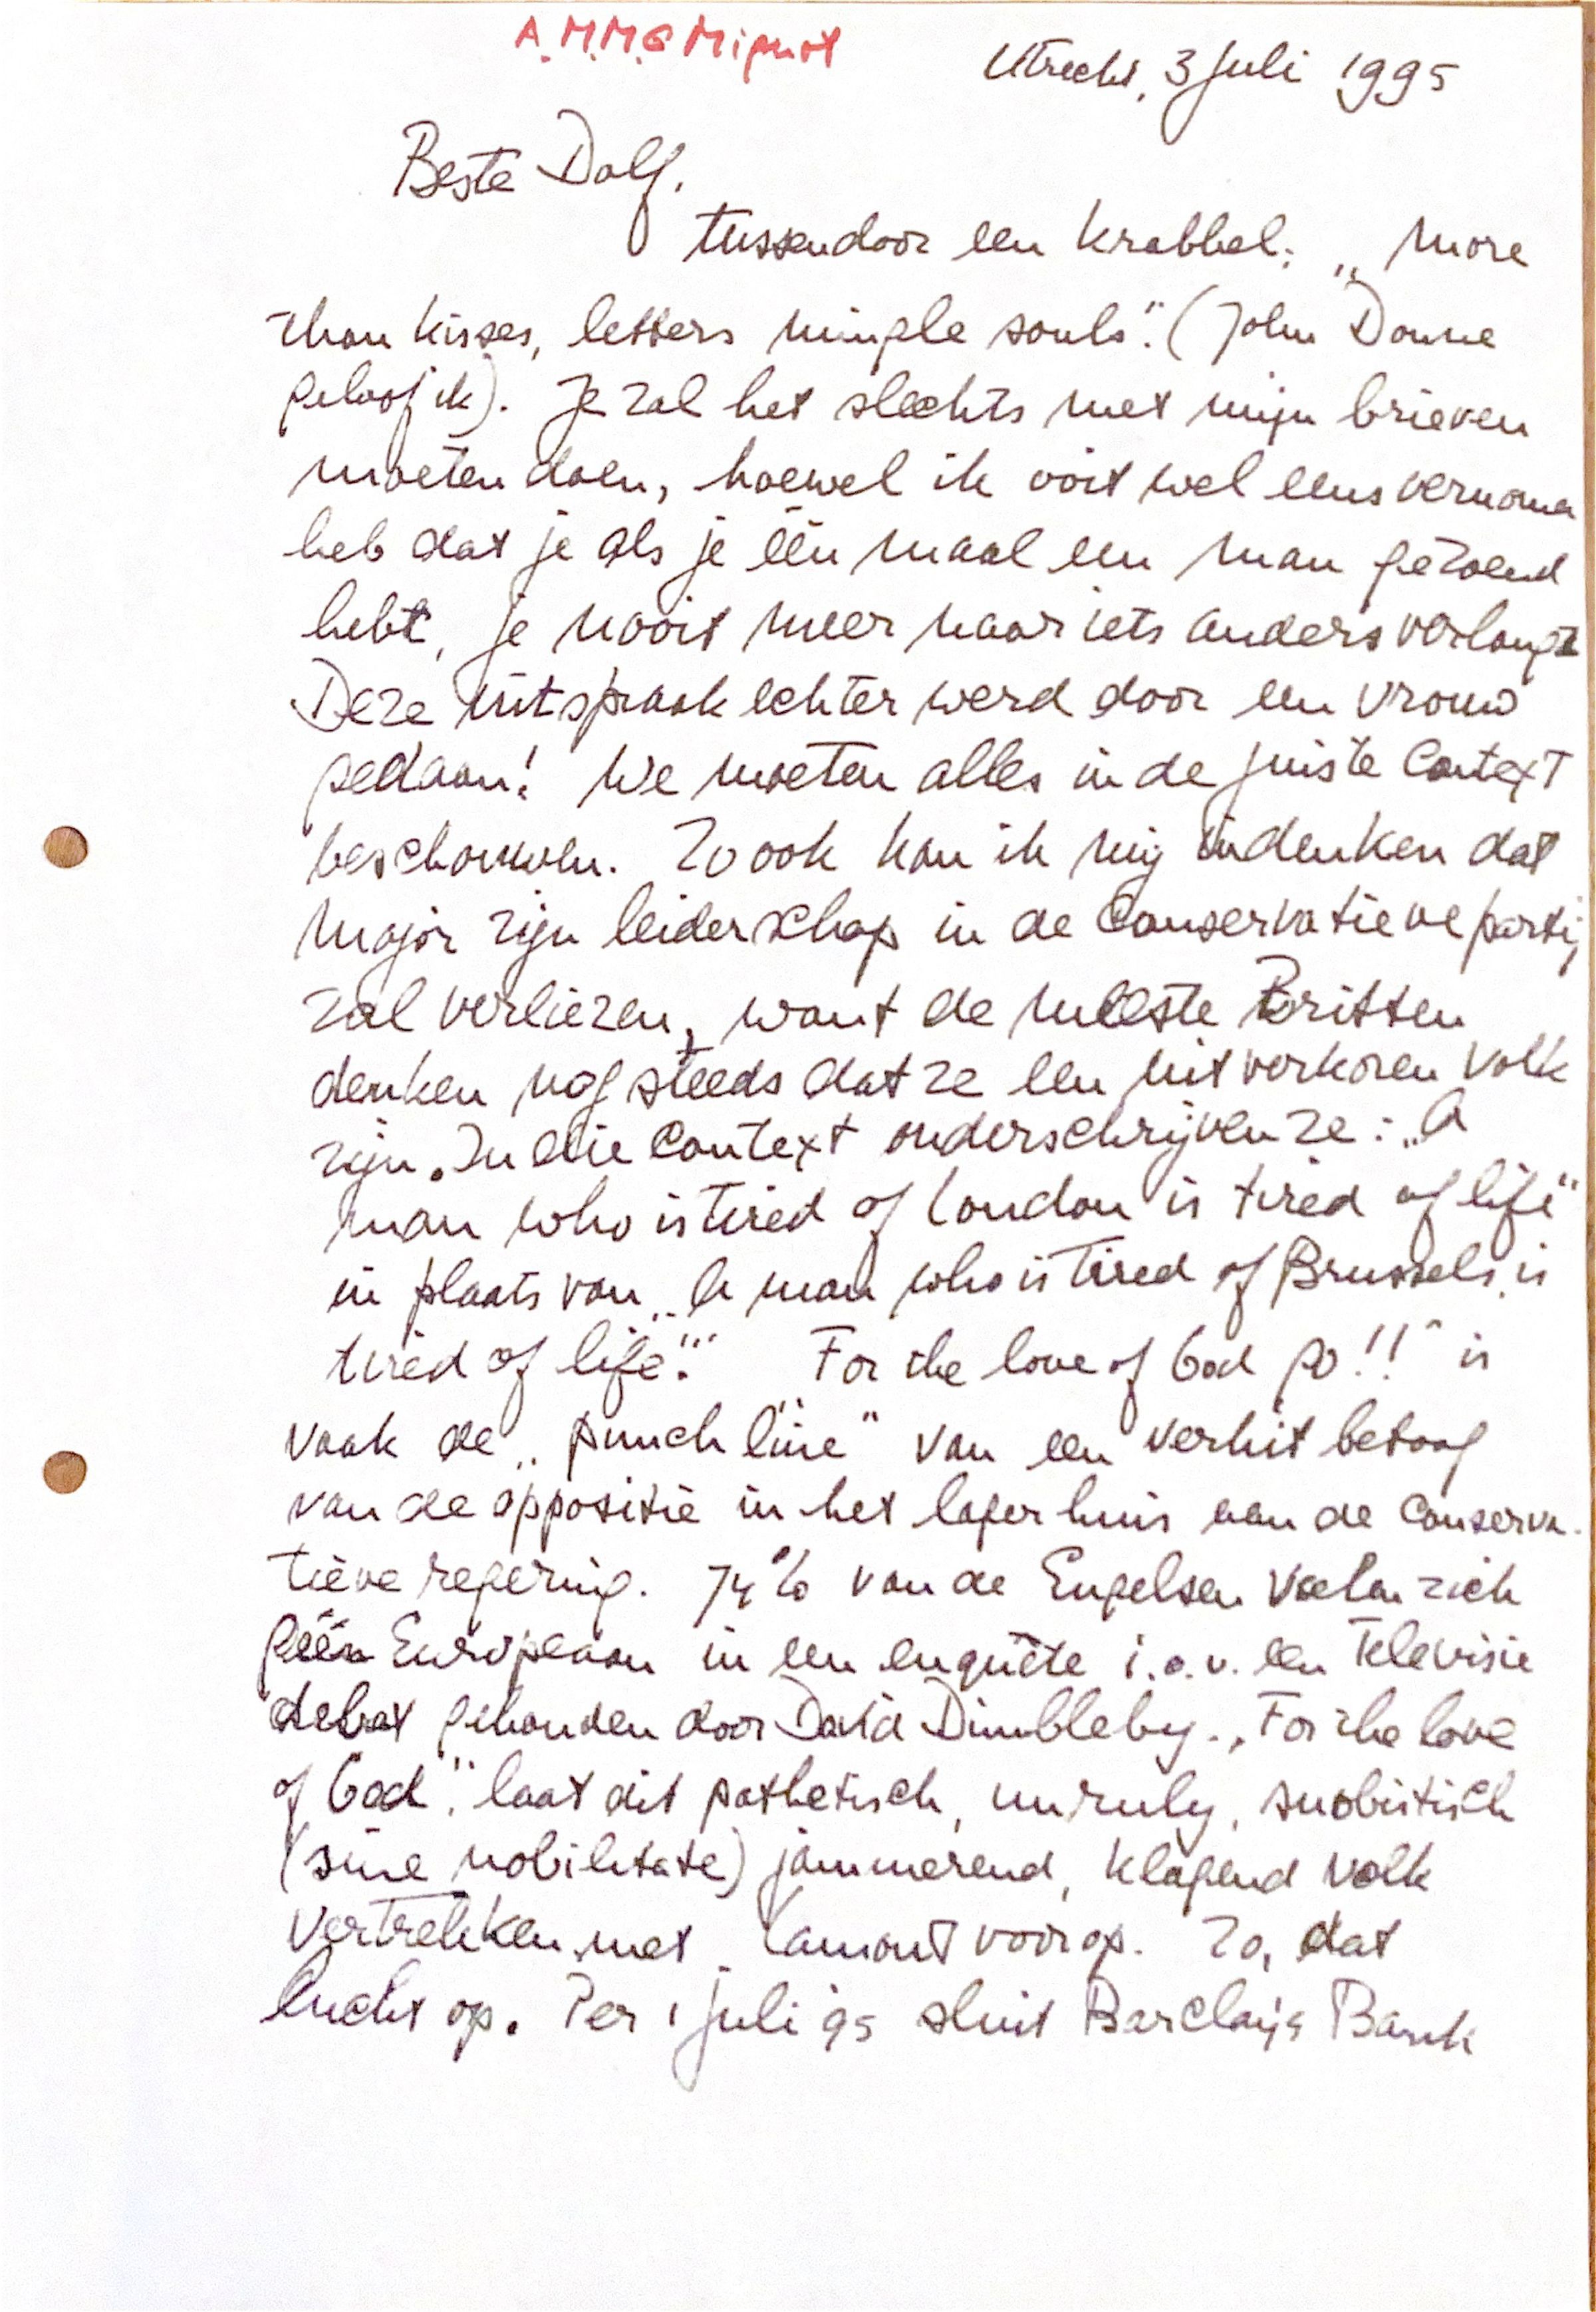 A.M.M.G Mignot
Utrecht, 3 juli 1995
Beste Dolf,
tussendoor een krabbel: „More
than kisses, letters mingle souls". (John Donne
geloof ik). Je zal het slechts met mijn brieven
moeten doen, hoewel ik ooit wel eens vernomen
heb dat je als je één maal een man gezoend
hebt, je nooit meer naar iets anders verlangt
Deze uitspraak echter werd door een vrouw
gedaan! We moeten alles in de juiste context
beschouwen. Zo ook kan ik mij indenken dat
Major zijn leiderschap in de Conservatieve partij
zal verliezen, want de meeste Britten
denken nog steeds dat ze een uitverkoren volk
zijn. In die context onderschrijven ze: „A
man who is tired of London is tired of life"
in plaats van „A man who is tired of Brussels, is
tired of life". For the love of God go!!" is
vaak de „punch line" van een verhit betoog
van de oppositie in het lagerhuis aan de Conserva-
tieve regering. 74% van de Engelsen voelen zich
géén Europeaan in een enquête i.o.v. een televisie
debat gehouden door David Dimbleby. „For the love
of God", laat dit pathetisch, unruly, snobistisch
(sine nobilitate) jammerend, klagend volk
vertrekken met Lamont voorop. Zo, dat
lucht op. Per 1 juli 95 sluit Barclays Bank